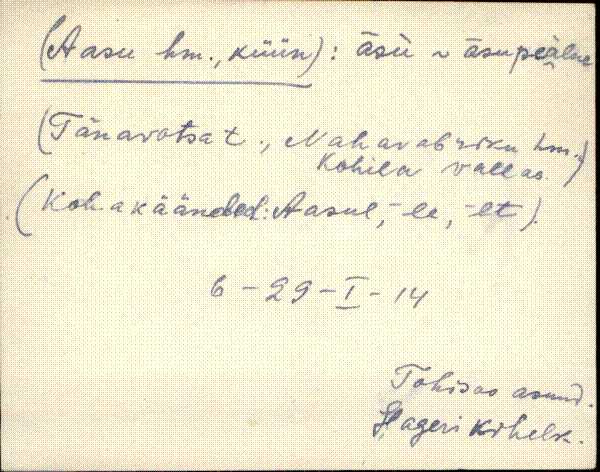 (Aasu hm., küün): āsù ~ āsupeälne
(Tänavotsa t., Nahavabriku hm.,
Kohila vallas.)
(Kohakäänded: Aasul, -le, -lt).
6 - 29 - I - 14
Tohisoo asund.
Hageri kihelk.